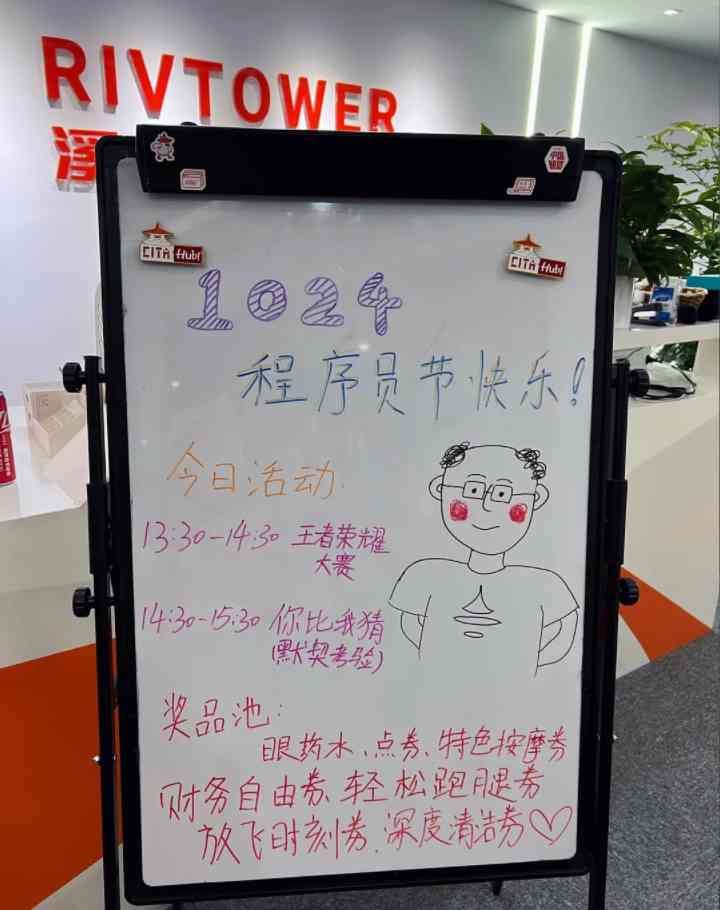 RIVTOWER
溪
CITA Hub!
CITA Hub!
1024
程序员节快乐!
今日活动
13:30-14:30 王者荣耀
大赛
14:30-15:30 你比我猜
(默契考验)
奖品池:
眼药水、点券、特色按摩券
财务自由券、轻松跑腿券
放飞时刻券、深度清洁券♡